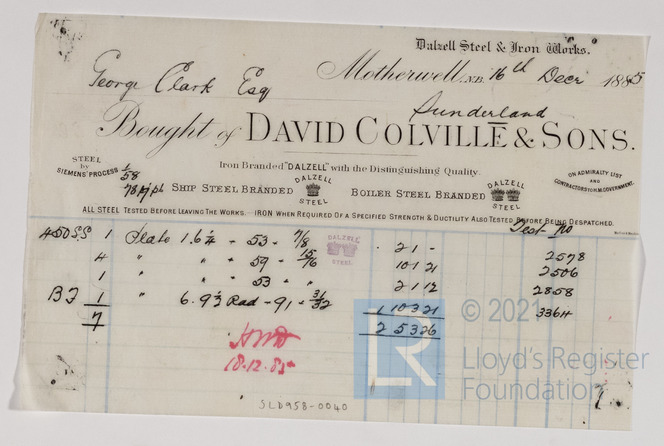 Dalzell Steel & Iron Works.
Motherwell, N.B. 16th Decr 1885
George Clark Esq
Sunderland
Bought of DAVID COLVILLE & SONS.
Iron Branded "DALZELL" with the Distinguishing Quality.
STEEL
by
SIEMENS' PROCESS
SHIP STEEL BRANDED
DALZELL
STEEL
BOILER STEEL BRANDED
DALZELL
STEEL
ON ADMIRALTY LIST
AND
CONTRACTORS TO H.M. GOVERNMENT.
ALL STEEL TESTED BEFORE LEAVING THE WORKS. IRON WHEN REQUIRED OF A SPECIFIED STRENGTH & DUCTILITY ALSO TESTED BEFORE BEING DESPATCHED.
Test No
450 S.S 1 53 " 7/8 2 1 -
4 " " 59 " 15/16 10 1 21 2578
1 " " 53 " " 2 1 12 2506
1 " 6.9½ Rad - 91 " 31/32 1 10 3 21 2858
7 2 5 3 26 3364
DALZELL
STEEL
18.12.85
SLD958-0040
© 2021
LR
Lloyd's Register
Foundation